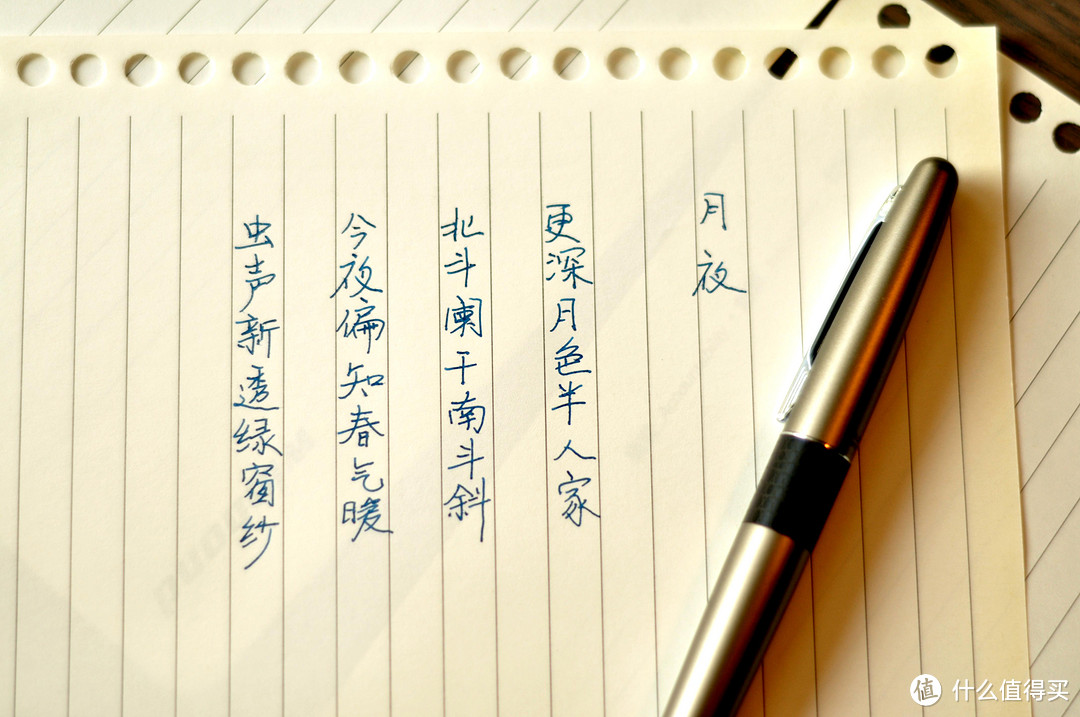 月夜
更深月色半人家
北斗阑干南斗斜
今夜偏知春气暖
虫声新透绿窗纱
值 什么值得买